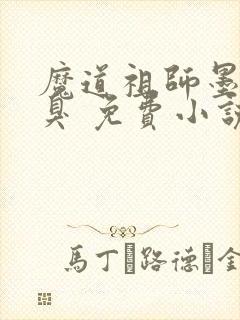 魔道祖師墨
臭 免費小說
馬丁·路德·金